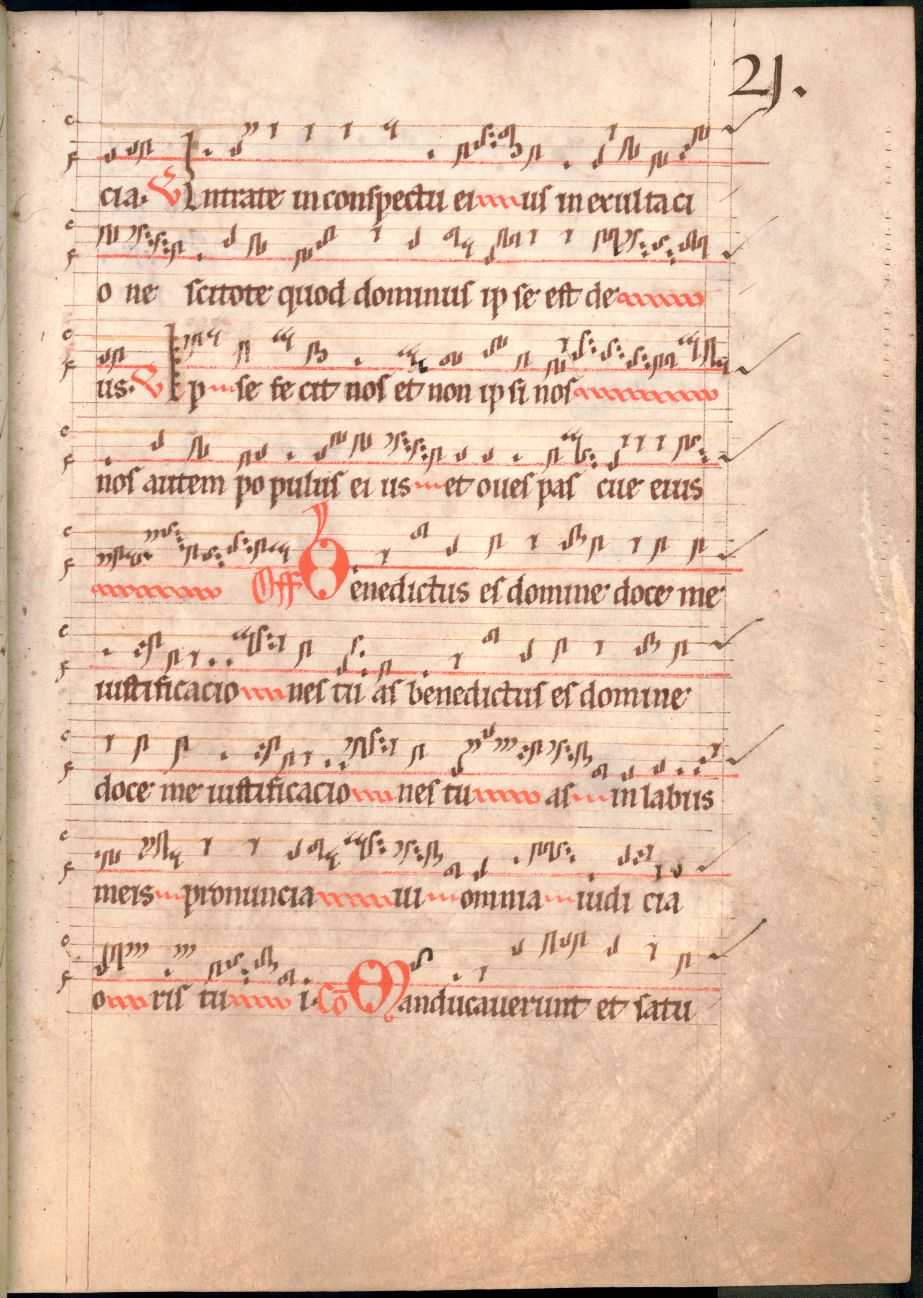 21.
cia. V Intrate in conspectu eius in exultaci
o ne scitote quod dominus ip se est de
us. V Ip se fe cit nos et non ip si nos
nos autem po pulus ei us et oues pas cue eius
Off Benedictus es domine doce me
iustificacio nes tu as benedictus es domine
doce me iustificacio nes tu as in labiis
meis pronuncia ui omnia iudi cia
o ris tu i. Co Manducauerunt et satu